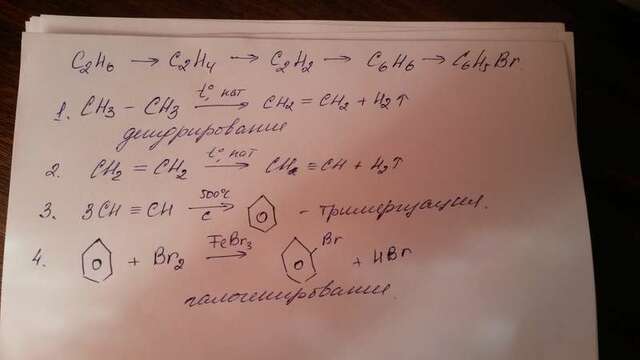 C2H6 → C2H4 → C2H2 → C6H6 → C6H5Br
1. CH3 – CH3 t°, кат → CH2 = CH2 + H2↑
дегидрирование
2. CH2 = CH2 t°, кат → CH ≡ CH + H2↑
3. 3CH ≡ CH 500°C C → – тримеризация.
4. + Br2 FeBr3 → Br + HBr
галогенирование.